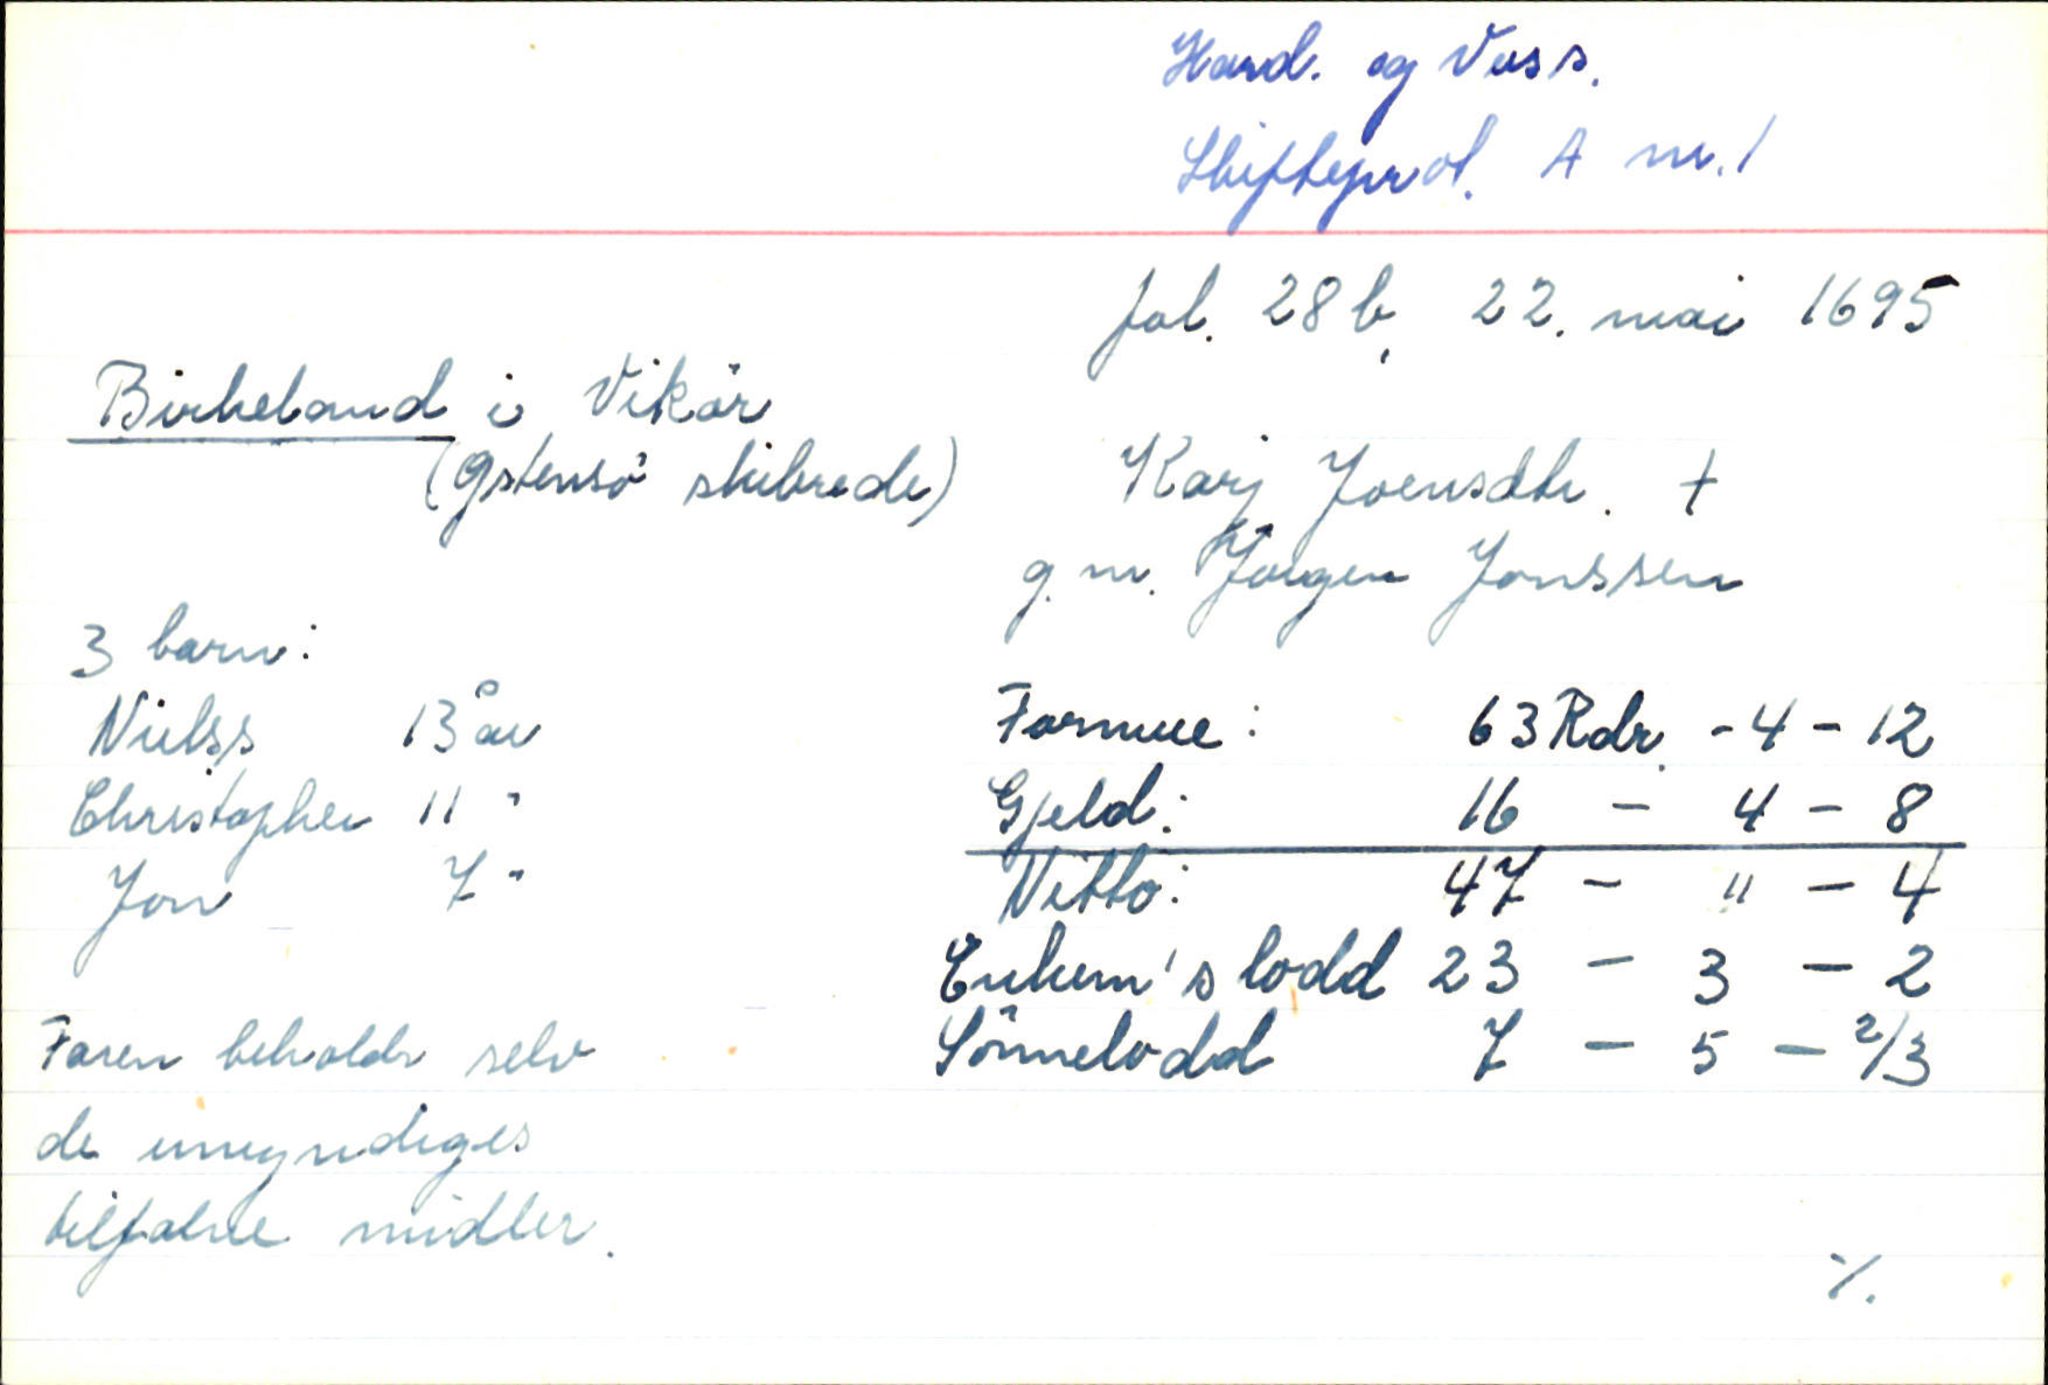 Hard. og Voss.
Skifteprot. A nr. 1
fol. 28 b, 22. mai 1695
Birkeland i Vikör
(Østensö skibrede)
Karj Joensdtr. †
g. m. Jörgen Jonssen
3 barn:
Nielss 13 år
Christopher 11 "
Jon 7 "
Formue: 63 Rdr. - 4 - 12
Gjeld: 16 - 4 - 8
Netto: 47 - " - 4
Enkem's lodd 23 - 3 - 2
Sönnelodd 7 - 5 - 2/3
Faren beholdr selv
de umyndiges
tilfalne midler.
./.